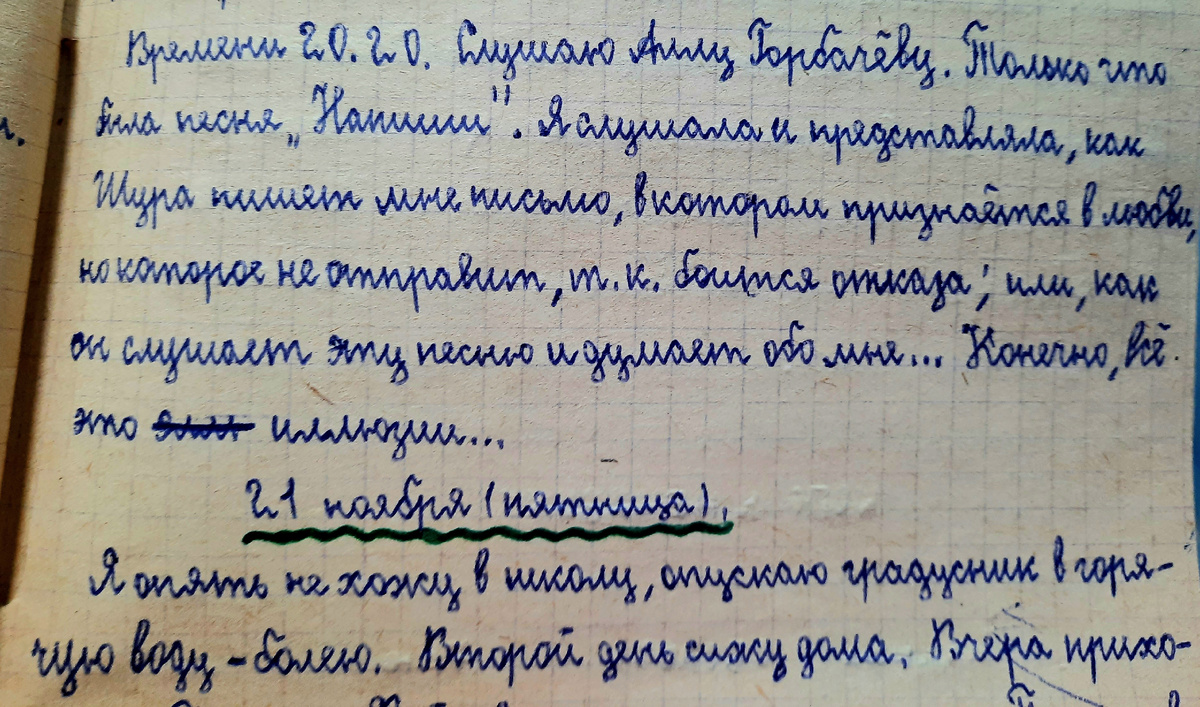 Времени 20.20. Слушаю Аллу Горбачёву. Только что
была песня „Напиши". Я слушала и представляла, как
Шура пишет мне письмо, в котором признаётся в любви,
но которое не отправит, т.к. боится отказа; или, как
он слушает эту песню и думает обо мне... Конечно, всё
это иллюзии...
21 ноября (пятница).
Я опять не хожу в школу, опускаю градусник в горя-
чую воду - болею. Второй день сижу дома. Вчера прихо-